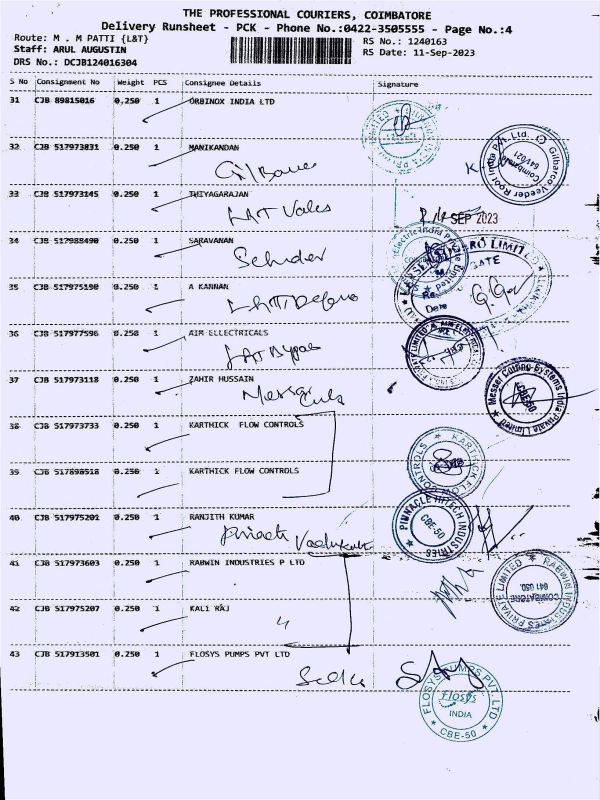 THE PROFESSIONAL COURIERS, COIMBATORE
Delivery Runsheet - PCK - Phone No.:0422-3505555 - Page No.:4
Route: M . M PATTI {L&T}
RS No.: 1240163
Staff: ARUL AUGUSTIN
RS Date: 11-Sep-2023
DRS No.: DCJB124016304
S No Consignment No Weight PCS Consignee Details Signature
31 CJB 89815016 0.250 1 ORBINOX INDIA LTD
32 CJB 517973831 0.250 1 MANIKANDAN
Gilbarco Veeder Root India Pvt. Ltd.
Coimbatore
641021
33 CJB 517973145 0.250 1 THIYAGARAJAN
L&T Valves
SEP 2023
34 CJB 517988490 0.250 1 SARAVANAN
Electric India Private Limited
RO LIMITED
GATE
Date
35 CJB 517975190 0.250 1 A KANNAN
36 CJB 517977596 0.250 1 AIM ELLECTRICALS
L&T Bypass
PRIVATE LIMITED
37 CJB 517973118 0.250 1 ZAHIR HUSSAIN
Messer Cutting Systems India Private Limited
CBE-50
38 CJB 517973733 0.250 1 KARTHICK FLOW CONTROLS
39 CJB 517898518 0.250 1 KARTHICK FLOW CONTROLS
KARTHICK FLOW CONTROLS
40 CJB 517975201 0.250 1 RANJITH KUMAR
PINNACLE HITECH INDUSTRIES
CBE-50
41 CJB 517973603 0.250 1 RABWIN INDUSTRIES P LTD
RABWIN INDUSTRIES PRIVATE LIMITED
COIMBATORE
641 050.
42 CJB 517975207 0.250 1 KALI RAJ
43 CJB 517913501 0.250 1 FLOSYS PUMPS PVT LTD
FLOSYS PUMPS PVT. LTD
Flosys
INDIA
CBE-50